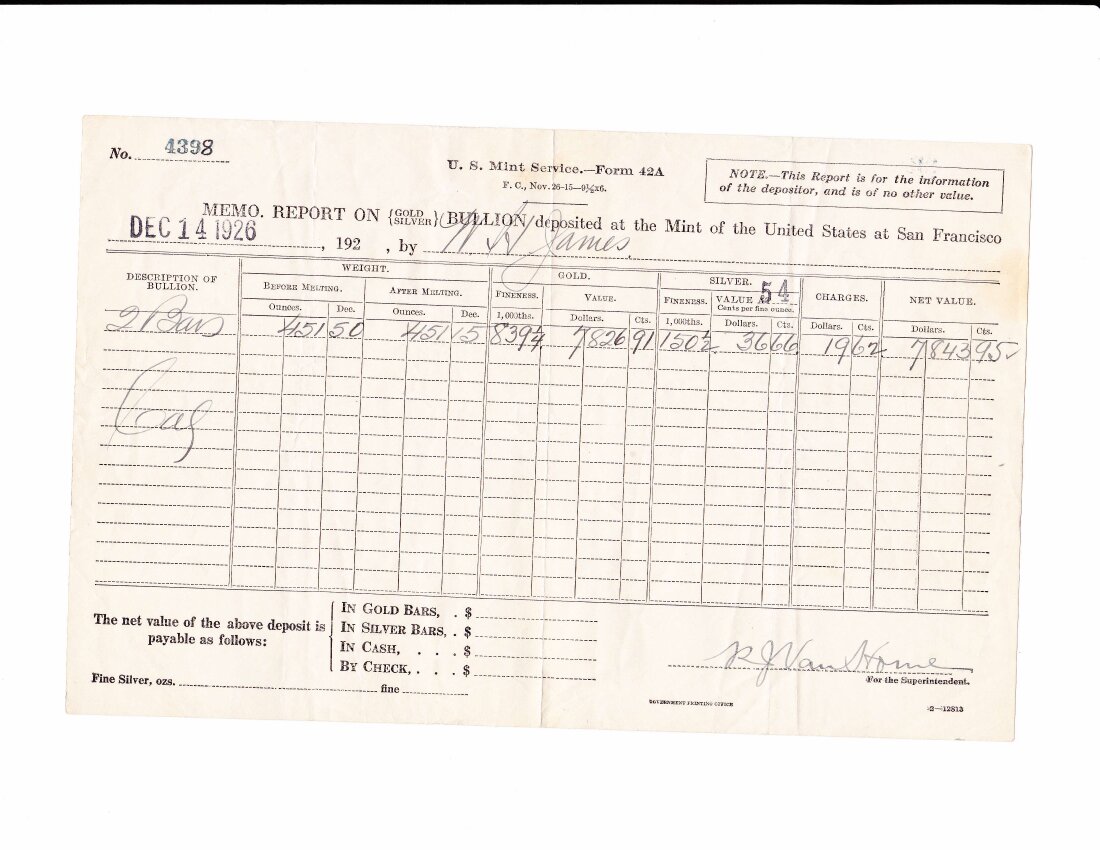 No. 4398
U. S. Mint Service.—Form 42A
F. C., Nov. 26-15—9½x6.
NOTE.—This Report is for the information
of the depositor, and is of no other value.
MEMO. REPORT ON {GOLD SILVER} BULLION deposited at the Mint of the United States at San Francisco
DEC 14 1926, 192 , by W H James.
DESCRIPTION OF BULLION. WEIGHT. GOLD. SILVER. CHARGES. NET VALUE.
BEFORE MELTING. AFTER MELTING. FINENESS. VALUE. FINENESS. VALUE AT 54
Cents per fine ounce.
Ounces. Dec. Ounces. Dec. 1,000ths. Dollars. Cts. 1,000ths. Dollars. Cts. Dollars. Cts. Dollars. Cts.
2 Bars 451 50 451 15 839¼ 7826 91 150½ 36 66 19 62 7843 95
Cal
The net value of the above deposit is
payable as follows:
IN GOLD BARS, . $
IN SILVER BARS, . $
IN CASH, . . . $
BY CHECK, . . . $
R J Van Horne
For the Superintendent.
Fine Silver, ozs. fine
GOVERNMENT PRINTING OFFICE
2—12813